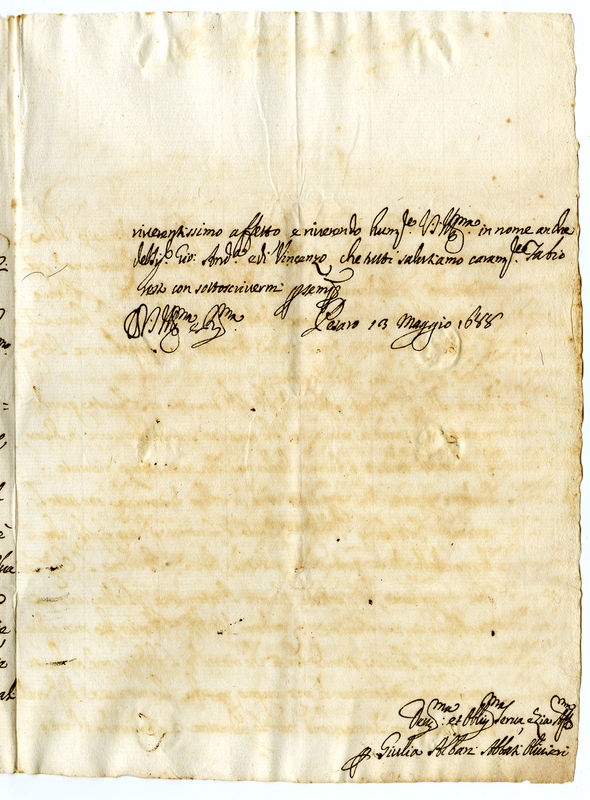 riverentissimo affetto, e riverendo hum.te V.S. Ill.ma in nome anche
del Sig.r Gio: And.a e di Vincenzo, che tutti salutiamo caram.te Fabio
resto con sottoscrivermi
D V.S. Ill.ma e R.ma Pesaro 13 Maggio 1688
Dev.ma: et Obblig.ma serva, e zia Aff.ma
Giulia Albani Abbati Olivieri